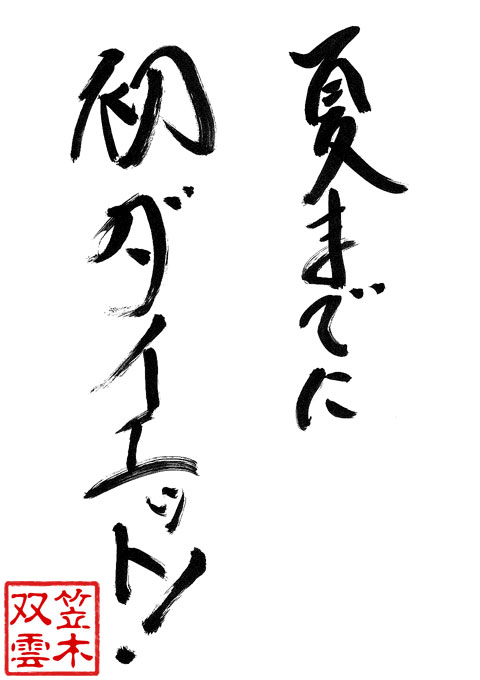 夏までに
初ダイエット!
笠木
双雲